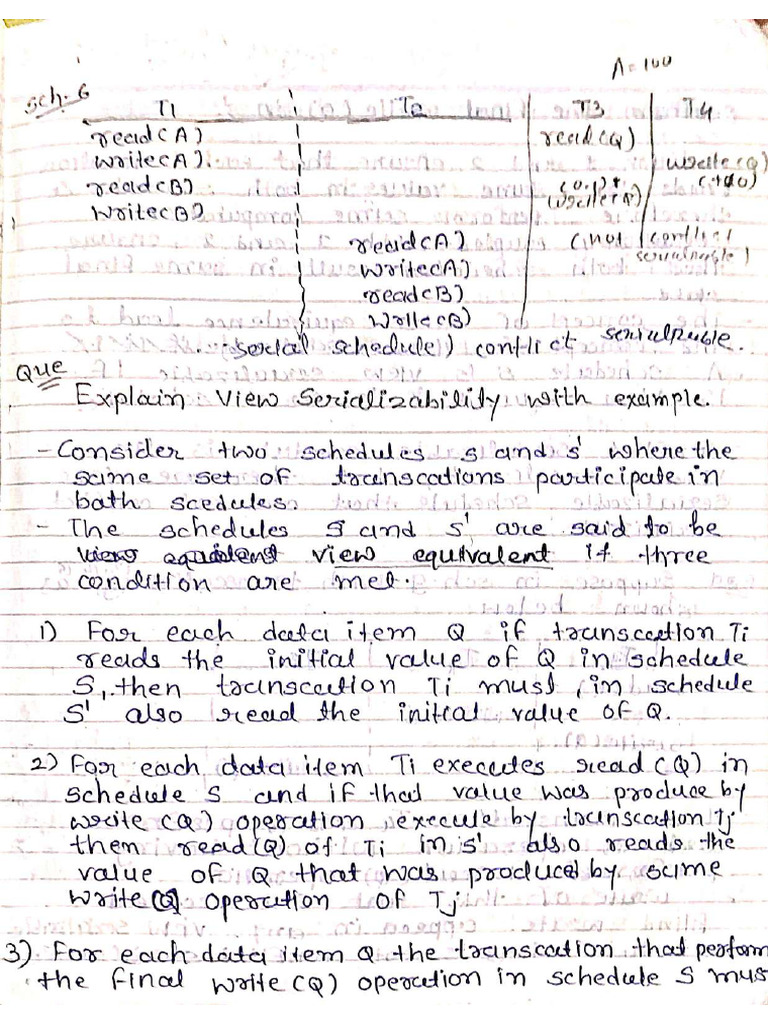 A=100
Sch. 6
T1 T2 T3 T4
read(A) read(Q)
write(A) write(Q)
read(B)
write(B)
read(A) (not conflict
write(A) serialpuble)
read(B)
write(B)
(serial schedule) conflict serialpuble.
Que
Explain View Serializability with example.
- Consider two schedules S and S' where the
same set of transcations participate in
bath scedules.
- The schedules S and S' are said to be
view equivalent if three
condition are met.
1) For each data item Q if transcation Ti
reads the initial value of Q in schedule
S, then transcation Ti must, in schedule
S' also read the initial value of Q.
2) For each data item Ti executes read(Q) in
schedule S and if that value was produce by
write(Q) operation execute by transcation Tj
then read(Q) of Ti in S' also reads the
value of Q that was produced by same
write(Q) operation of Tj.
3) For each data item Q the transcation that perform
the final write(Q) operation in schedule S mus